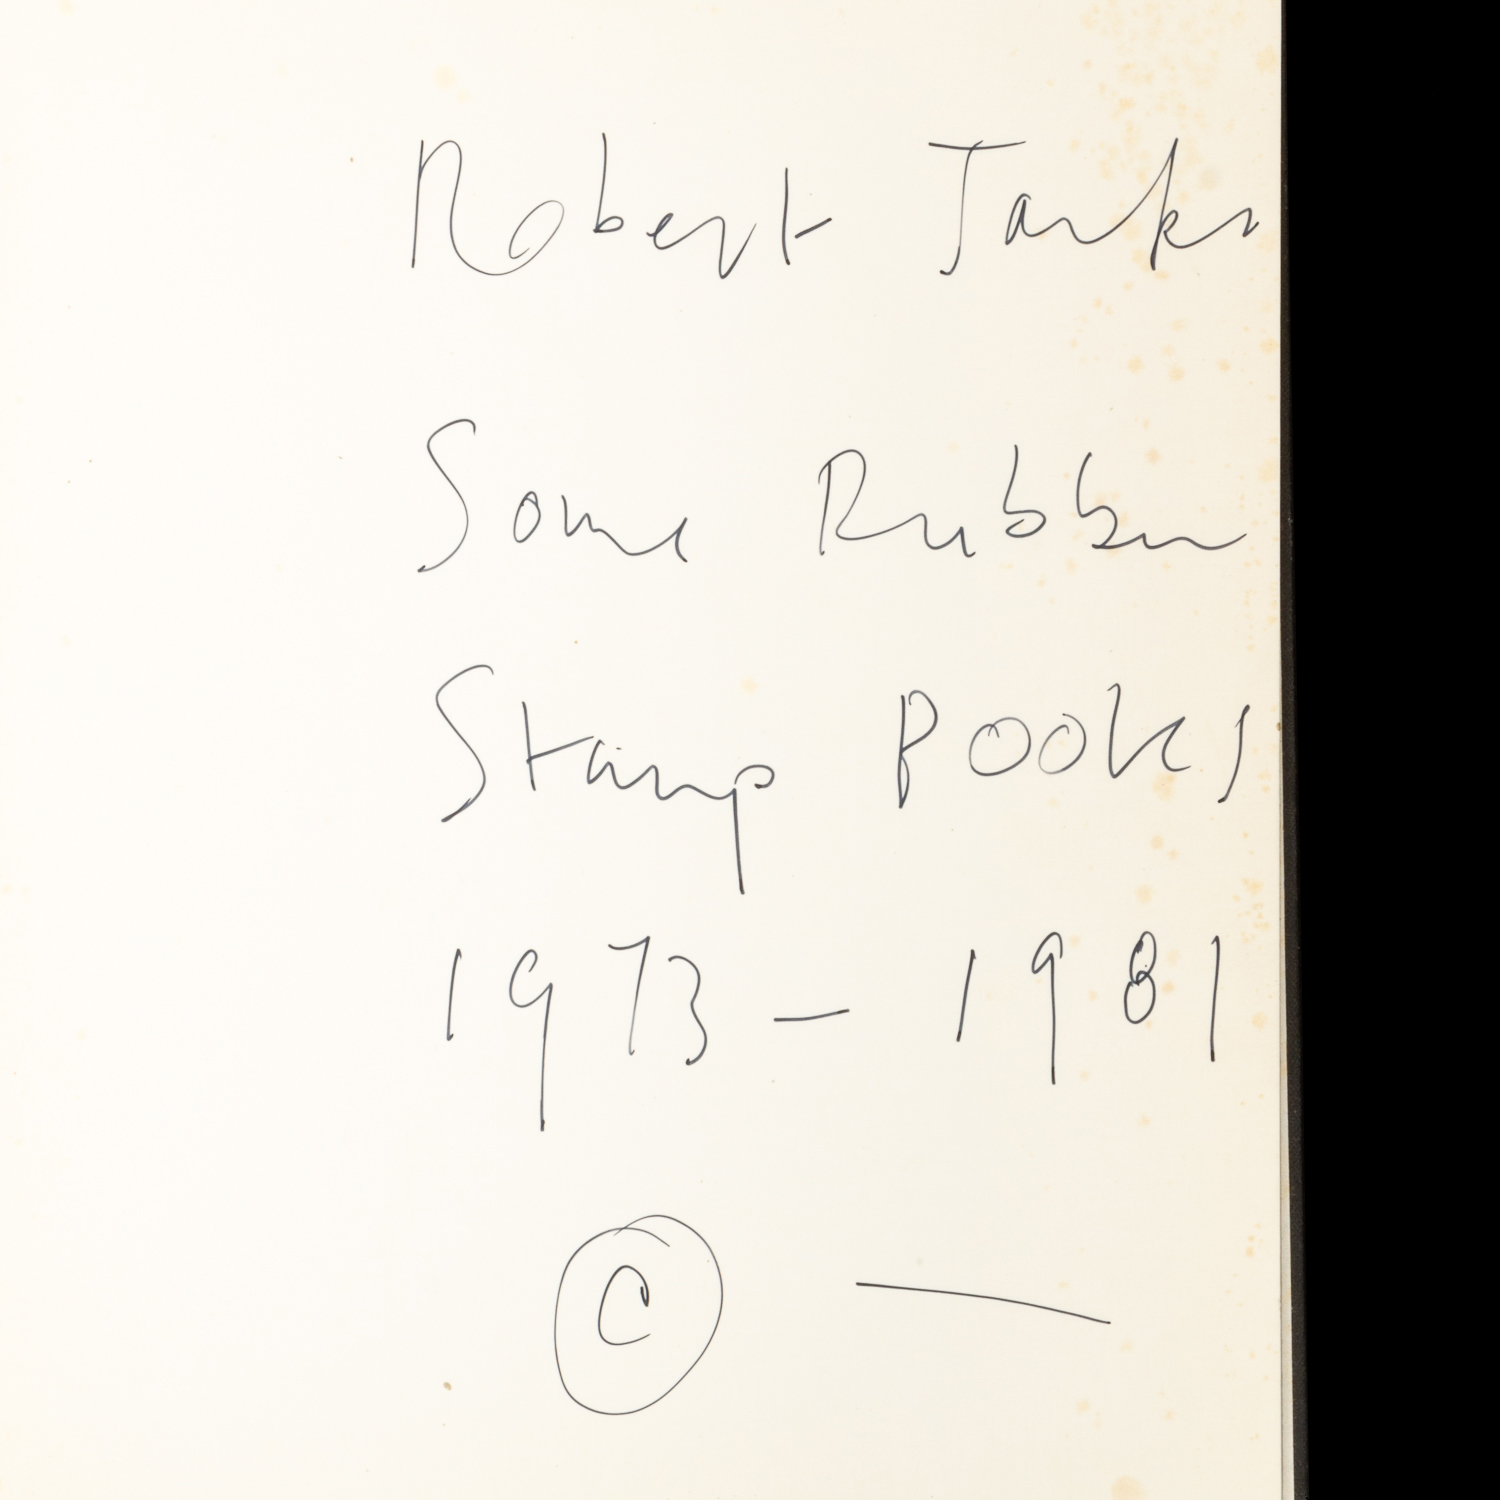 Robert Janks
Some Rubber
Stamp Books
1973 – 1981
© —